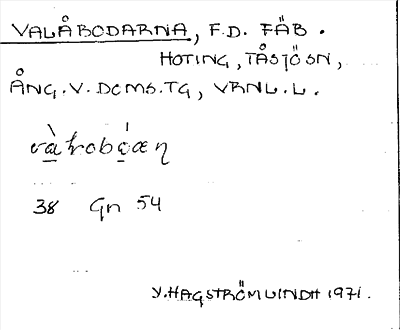 VALÅBODARNA, F.D. FÄB.
HOTING, TÅSJÖ SN,
ÅNG.V. DCMS.TG, VRNL.L.
38 Gn 54
Y. HAGSTRÖM LINDH 1971.